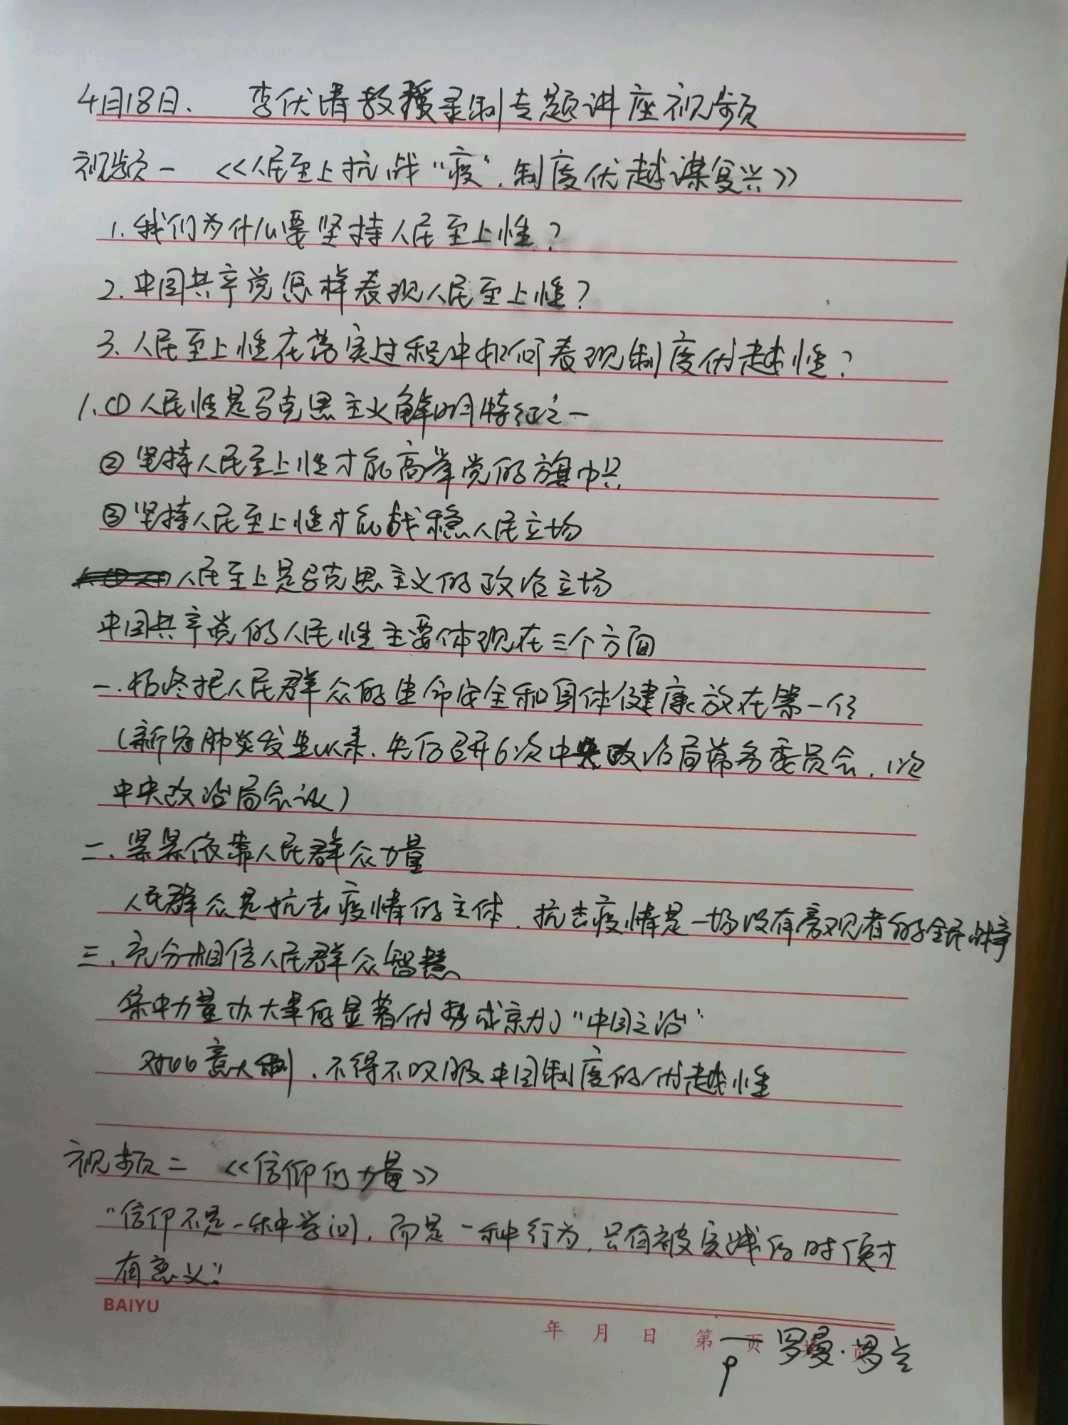 4月18日、 李伏清教授录制专题讲座视频
视频一 《人民至上抗战“疫”,制度优越谋复兴》
1.我们为什么要坚持人民至上性?
2.中国共产党怎样表现人民至上性?
3.人民至上性在落实过程中如何表现制度优越性?
1.①人民性是马克思主义鲜明特征之一
②坚持人民至上性才能高举党的旗帜
③坚持人民至上性才能站稳人民立场
人民至上是马克思主义的政治立场
中国共产党的人民性主要体现在三个方面
一.始终把人民群众的生命安全和身体健康放在第一位
(新冠肺炎发生以来,先后召开6次中央政治局常务委员会,1次
中央政治局会议)
二、紧紧依靠人民群众力量
人民群众是抗击疫情的主体,抗击疫情是一场没有旁观者的全民战争
三、充分相信人民群众智慧
集中力量办大事的显著优势成就了“中国之治”
对比意大利,不得不叹服中国制度的优越性
视频二 《信仰的力量》
“信仰不是一种学问,而是一种行为,只有被实践的时候才
有意义!
BAIYU
年 月 日 第 页
— 罗曼·罗兰